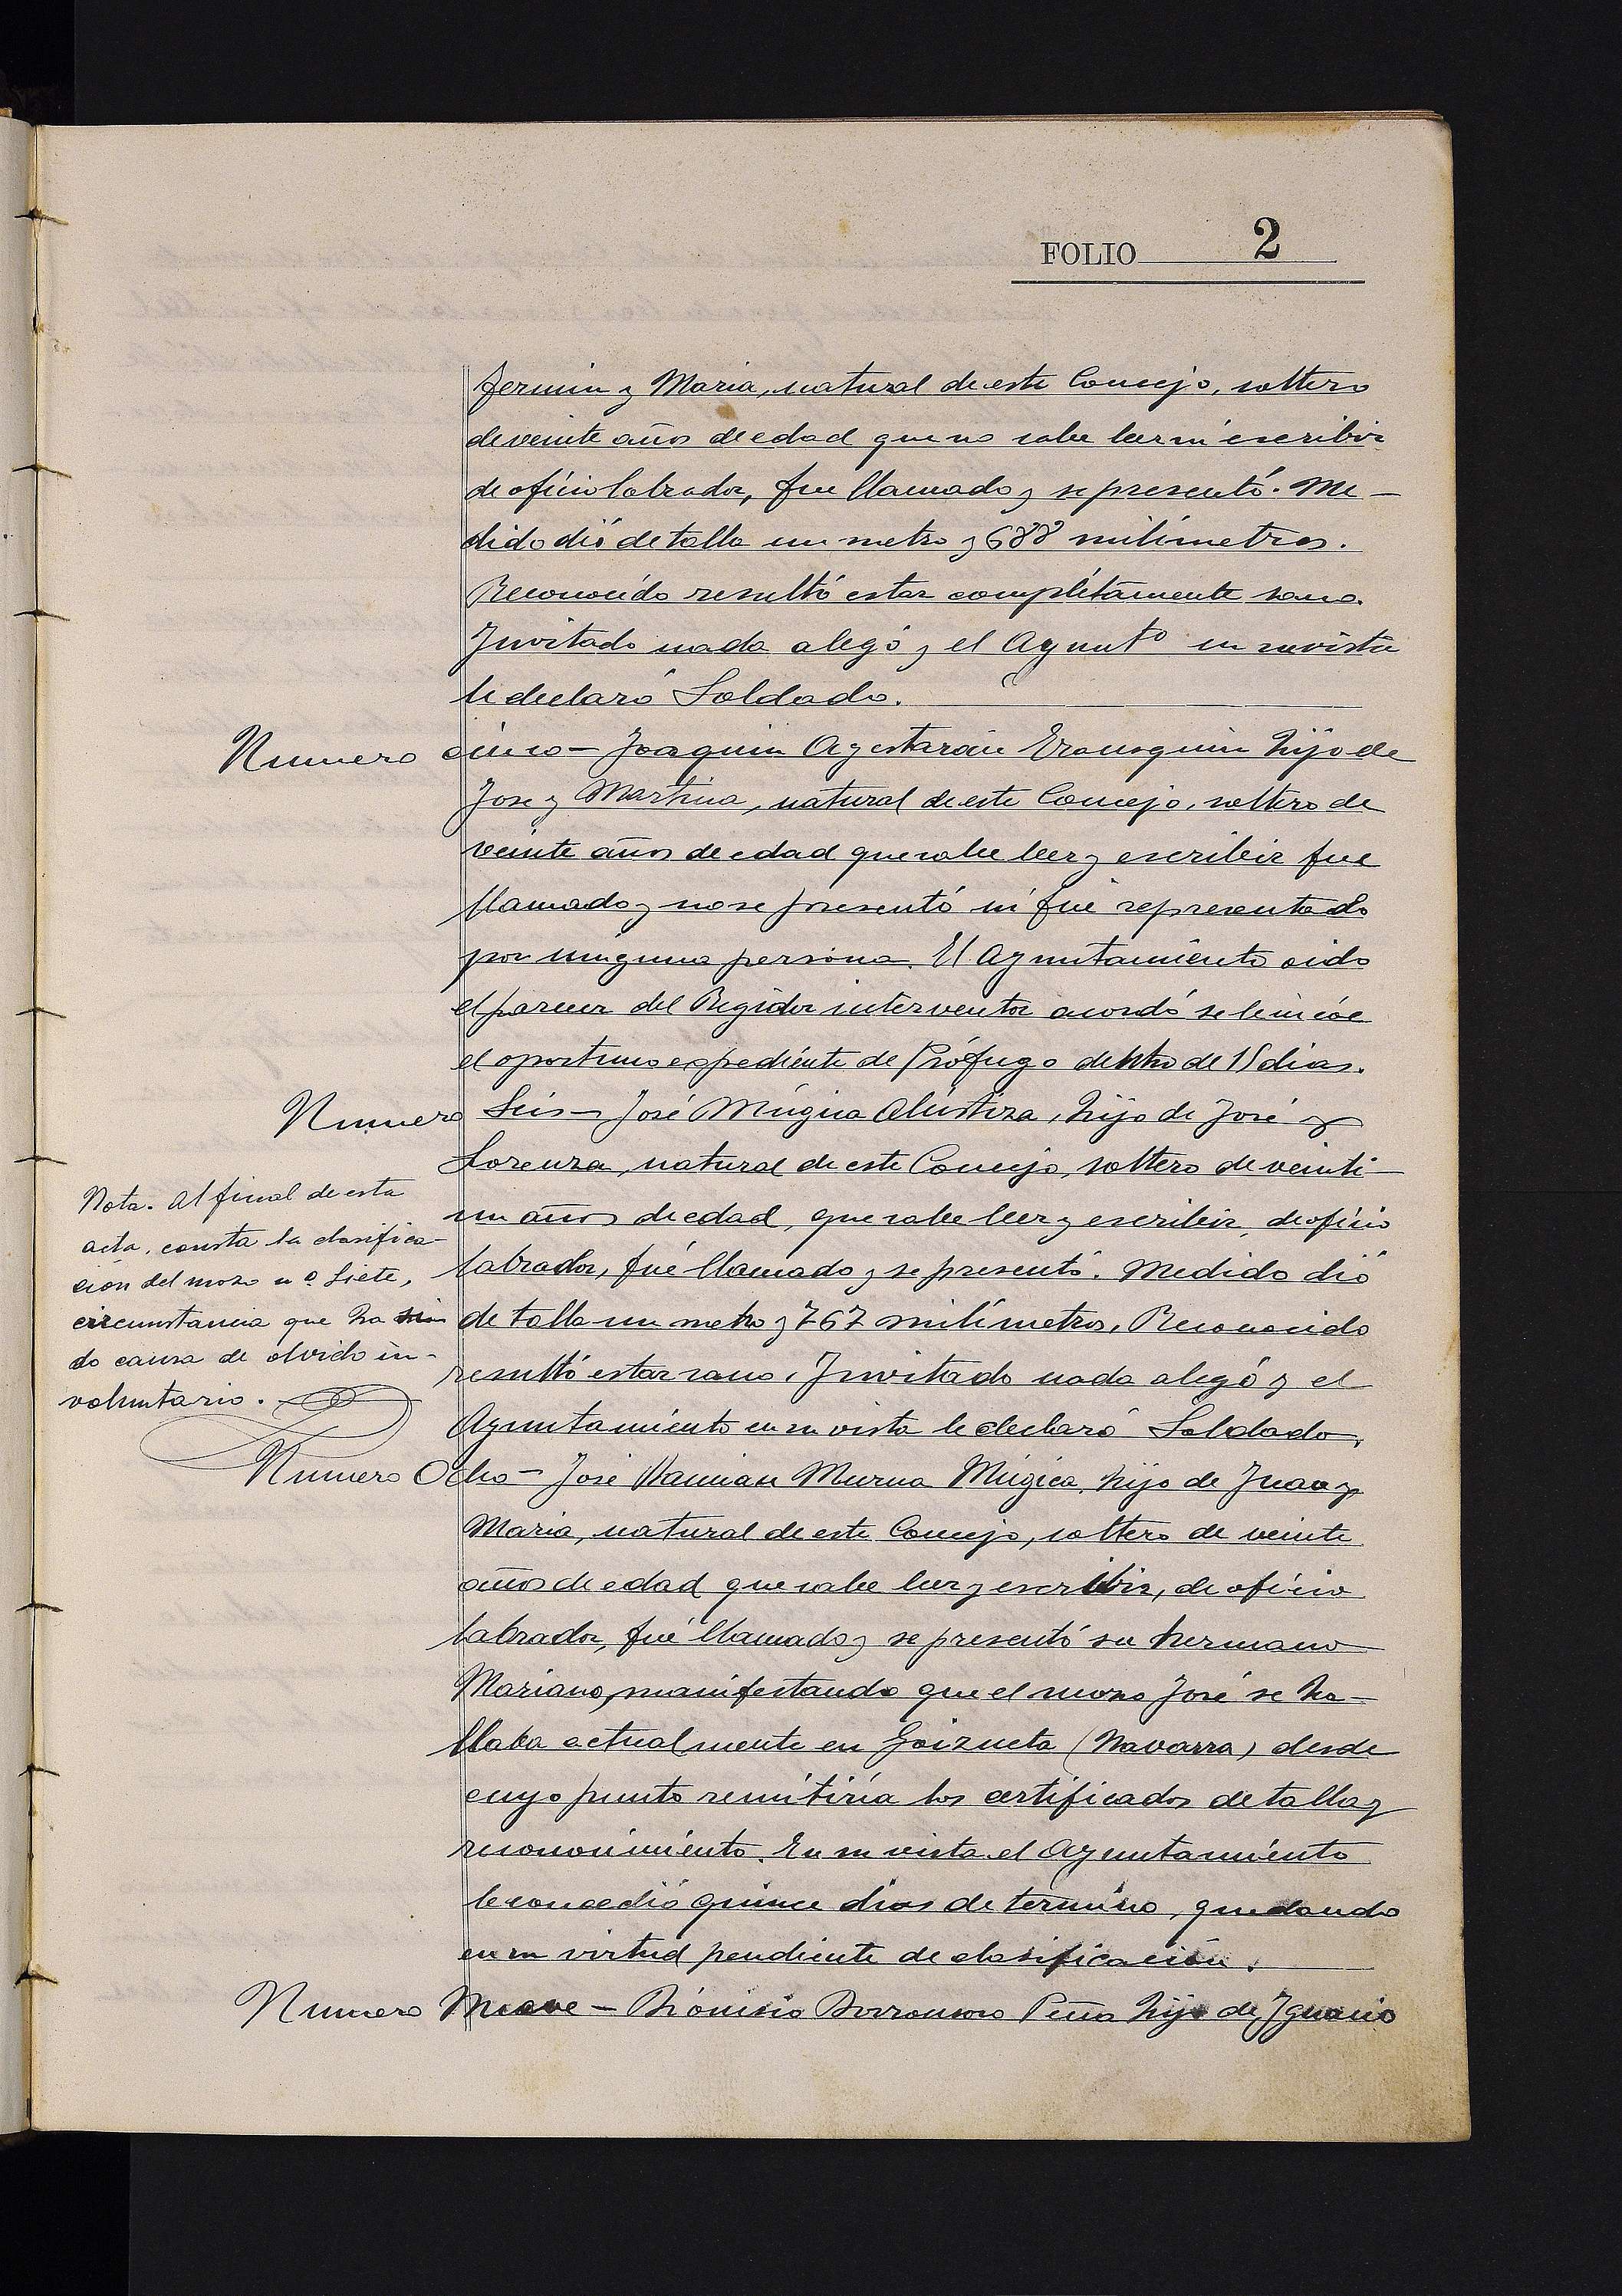 FOLIO 2
Fermin y Maria, natural de este Concejo, soltero
de veinte años de edad que no sabe leer ni escribir
de oficio labrador, fue llamado y se presentó. Me-
dido dió de talla un metro y 688 milímetros.
Reconocido resultó estar complétamente sano.
Invitado nada alegó y el Ayunto en su vista
le declaró Soldado.
Numero cinco - Joaquin Ayestarán Erausquin hijo de
Jose y Martina, natural de este Concejo, soltero de
veinte años de edad que sabe leer y escribir fue
llamado y no se presentó ni fué representado
por ninguna persona. El Ayuntamiento oido
el parecer del Regidor interventor acordó se le inicie
el oportuno expediente de Prófugo dentro de 15 dias.
Numero Seis - José Múgica Alústiza, hijo de José y
Lorenza, natural de este Concejo, soltero de veinti-
un años de edad, que sabe leer y escribir, de oficio
labrador, fué llamado y se presentó. Medido dió
de talla un metro y 767 milímetros, Reconocido
resultó estar sano. Invitado nada alegó y el
Ayuntamiento en su vista le declaró Soldado.
Nota. Al final de esta
acta, consta la clasifica-
ción del mozo nº Siete,
circunstancia que ha si
do causa de olvido in-
voluntario.
Numero Ocho - José Damian Murua Múgica, hijo de Juan y
Maria, natural de este Concejo, soltero de veinte
años de edad que sabe leer y escribir, de oficio
labrador, fué llamado y se presentó su hermano
Mariano, manifestando que el mozo José se ha-
llaba actualmente en Goizueta (Navarra) desde
cuyo punto remitiría los certificados de talla y
reconocimiento. En su vista el Ayuntamiento
le concedió quince dias de termino, quedando
en su virtud pendiente de clasificación.
Numero Nueve - Diónisio Dorronsoro Peña hijo de Ignacio